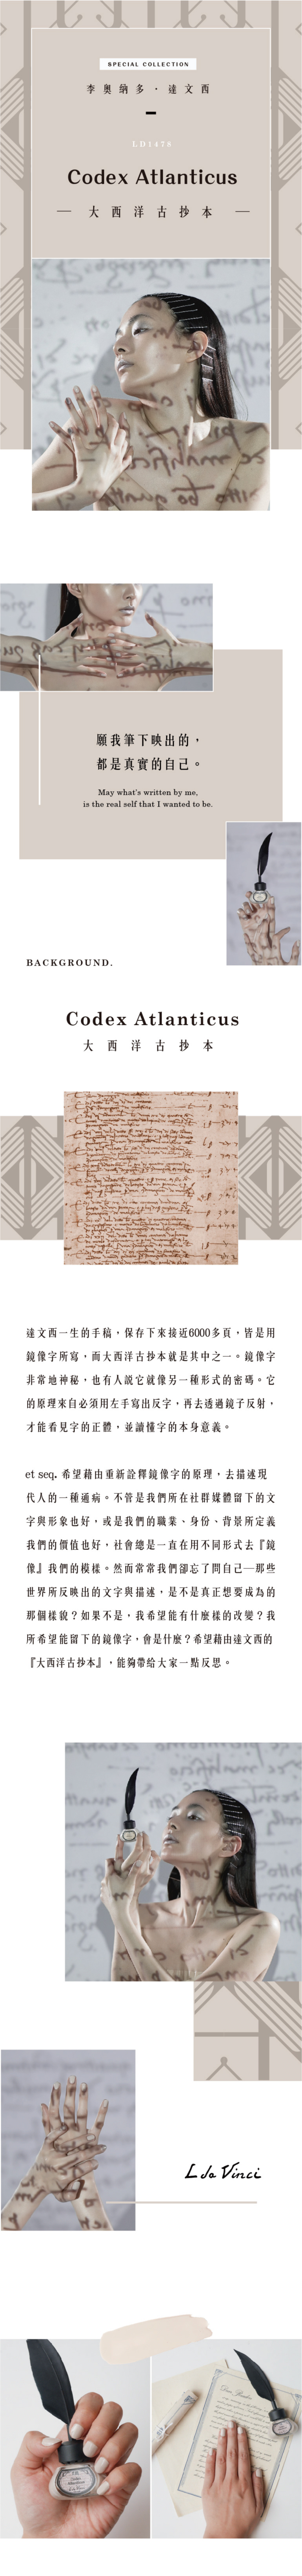 SPECIAL COLLECTION
李奧納多·達文西
LD1478
Codex Atlanticus
大西洋古抄本
願我筆下映出的，
都是真實的自己。
May what's written by me,
is the real self that I wanted to be.
BACKGROUND.
Codex Atlanticus
大西洋古抄本
達文西一生的手稿，保存下來接近6000多頁，皆是用
鏡像字所寫，而大西洋古抄本就是其中之一。鏡像字
非常地神秘，也有人説它就像另一種形式的密碼。它
的原理來自必須用左手寫出反字，再去透過鏡子反射，
才能看見字的正體，並讀懂字的本身意義。
et seq. 希望藉由重新詮釋鏡像字的原理，去描述現
代人的一種通病。不管是我們所在社群媒體留下的文
字與形象也好，或是我們的職業、身份、背景所定義
我們的價值也好，社會總是一直在用不同形式去『鏡
像』我們的模樣。然而常常我們卻忘了問自己—那些
世界所反映出的文字與描述，是不是真正想要成為的
那個樣貌？如果不是，我希望能有什麼樣的改變？我
所希望能留下的鏡像字，會是什麼？希望藉由達文西的
『大西洋古抄本』，能夠帶給大家一點反思。
L da Vinci